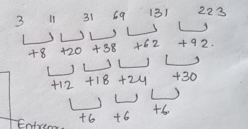 3 11 31 69 131 223
+8 +20 +38 +62 +92.
+12 +18 +24 +30
+6 +6 +6